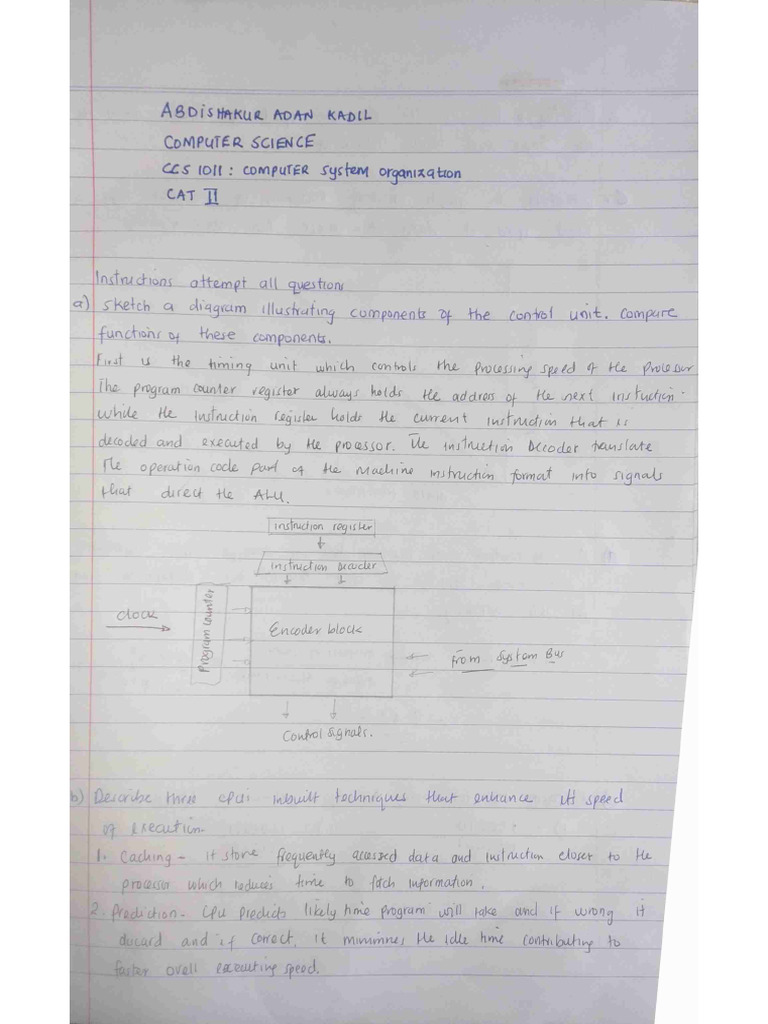 ABDISHAKUR ADAN KADIL
COMPUTER SCIENCE
CCS 1011 : COMPUTER System Organization
CAT II
Instructions attempt all questions
a) sketch a diagram illustrating components of the control unit. Compare
functions of these components.
First is the timing unit which controls the processing speed of the processor
The program counter register always holds the address of the next instruction.
while the instruction register holds the current instruction that is
decoded and executed by the processor. The instruction Decoder translate
The operation code part of the Machine instruction format into signals
that direct the ALU.
instruction register
instruction decoder
clock
Program counter
Encoder block
From System Bus
Control signals.
b) Describe three CPU's inbuilt techniques that enhance its speed
of execution.
1. Caching - it store frequently accessed data and instruction closer to the
processor which reduces time to fetch information.
2. Prediction - CPU predicts likely time program will take and if wrong it
discard and if correct, it minimises the idle time contributing to
faster overll executing speed.